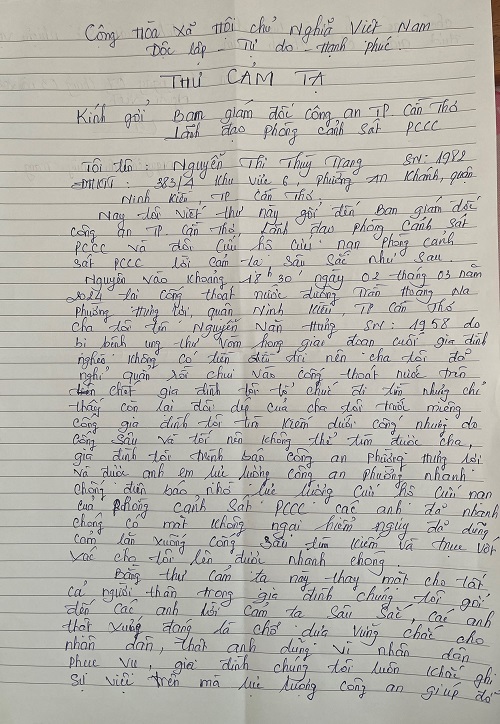 Cộng Hòa Xã Hội chủ Nghĩa Việt Nam
Độc lập - Tự do - Hạnh phúc.
THƯ CẢM TẠ
Kính gởi Bam giám đốc công an TP Cần Thơ
Lãnh đạo Phòng cảnh sát PCCC
Tôi tên: Nguyễn Thị Thùy Trang SN: 1982
383/4 Khu vực 6, phường An Khánh, quận
Ninh Kiều TP Cần Thơ,
Nay tôi viết thư này gởi đến Ban giám đốc
công an TP Cần Thơ Lãnh đạo phòng cảnh sát
PCCC và đội cứu hộ cứu nạn phòng cảnh
sát PCCC lời cảm tạ sâu sắc như sau.
Nguyên vào khoảng 18h30' ngày 02 tháng 03 năm
2024 tại cống thoát nước đường Trần Hoàng Na
phường Hưng lợi, quận Ninh Kiều, TP Cần Thơ
cha tôi tên Nguyễn Văn Hưng SN: 1958 do
bị bệnh ung thư vòm họng giai đoạn cuối gia đình
nghèo không có tiền điều trị nên cha tôi đã
nghĩ quẩn rồi chui vào cống thoát nước trên
chết gia đình tôi tổ chức đi tìm nhưng chỉ
thấy còn lại đôi dép của cha tôi trước miệng
cống gia đình tôi tìm kiếm dưới cống nhưng do
cống sâu và tối nên không thể tìm được cha,
gia đình tôi trình báo công an phường Hưng lợi
và được anh em lực lượng công an phường nhanh
chóng điện báo nhờ lực lượng cứu hộ cứu nạn
của phòng cảnh sát PCCC các anh đã nhanh
chóng có mặt không ngại hiểm nguy đã dũng
cảm lặn xuống cống sâu tìm kiếm và trục vớt
xác cha tôi lên được nhanh chóng
Bằng thư cảm tạ này thay mặt cho tất
cả người thân trong gia đình chúng tôi gởi
đến các anh lời cảm tạ sâu sắc, các anh
thật xứng đáng là chổ dựa vững chắc cho
nhân dân, thật anh dũng vì nhân dân
phục vụ, gia đình chúng tôi luôn khắc ghi
sự việc trên mà lực lượng công an giúp đỡ